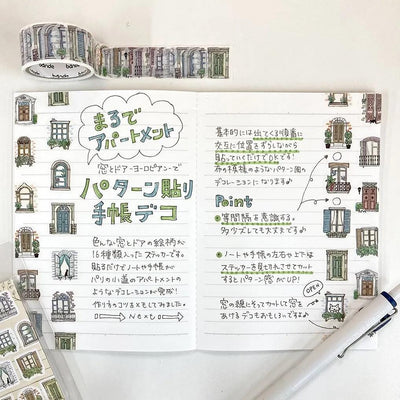 bande
まるで
アパートメント
窓とドア-ヨーロピアン-で
パターン貼り
手帳デコ
色んな窓とドアの絵柄が
16種類入ったステッカーです。
貼るだけでノートや手帳が
パリの小道のアパートメントの
ようなデコレーションが完成!
作り方のコツをメモしてみました。
Next
基本的には出てくる順番に
交互に位置をずらしながら
貼っていくだけでOKです!
布の模様のようなパターン風の
デコレーションになります♪
Point
等間隔を意識する。
多少ズレても大丈夫です♪
ノートや手帳の左右や上下は
ステッカーを見切れさせてカット
するとパターン感がUP!
OPEN
窓の縁にそってカットして窓を
あけるデコもおもしろいですよ♪